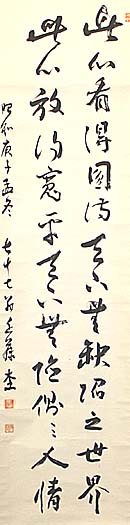 此心看得圓満天下無缺陷之世界
此心放得寛平天下無險側之人情
昭和庚子孟冬 七十七翁